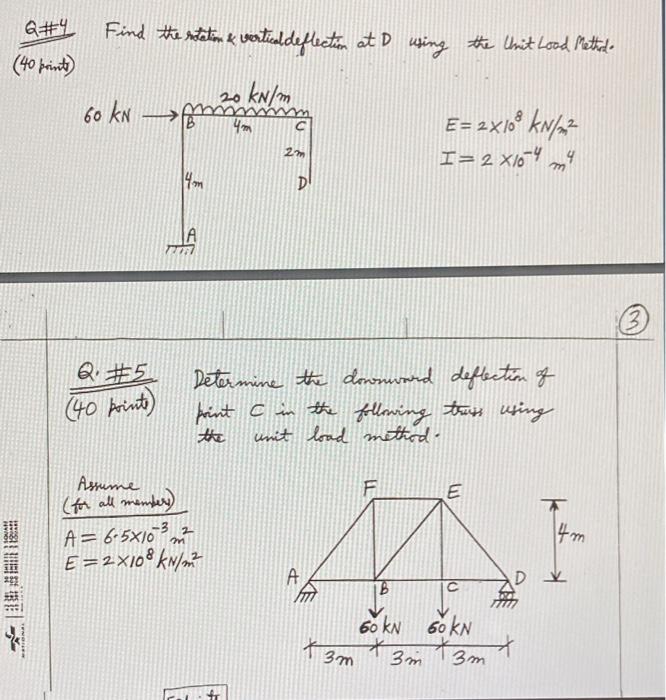 Q#4 Find the rotation & vertical deflection at D using the Unit Load Method.
(40 points)
20 kN/m
60 kN
B 4m C
2m
4m
D
A
E = 2×10⁸ kN/m²
I = 2 ×10⁻⁴ m⁴
3
Q. #5 Determine the downward deflection of
(40 points) point C in the following truss using
the unit load method.
Assume
(for all members)
A = 6.5×10⁻³ m²
E = 2×10⁸ kN/m²
F E
4m
A B C D
60 kN 60 kN
3m 3m 3m